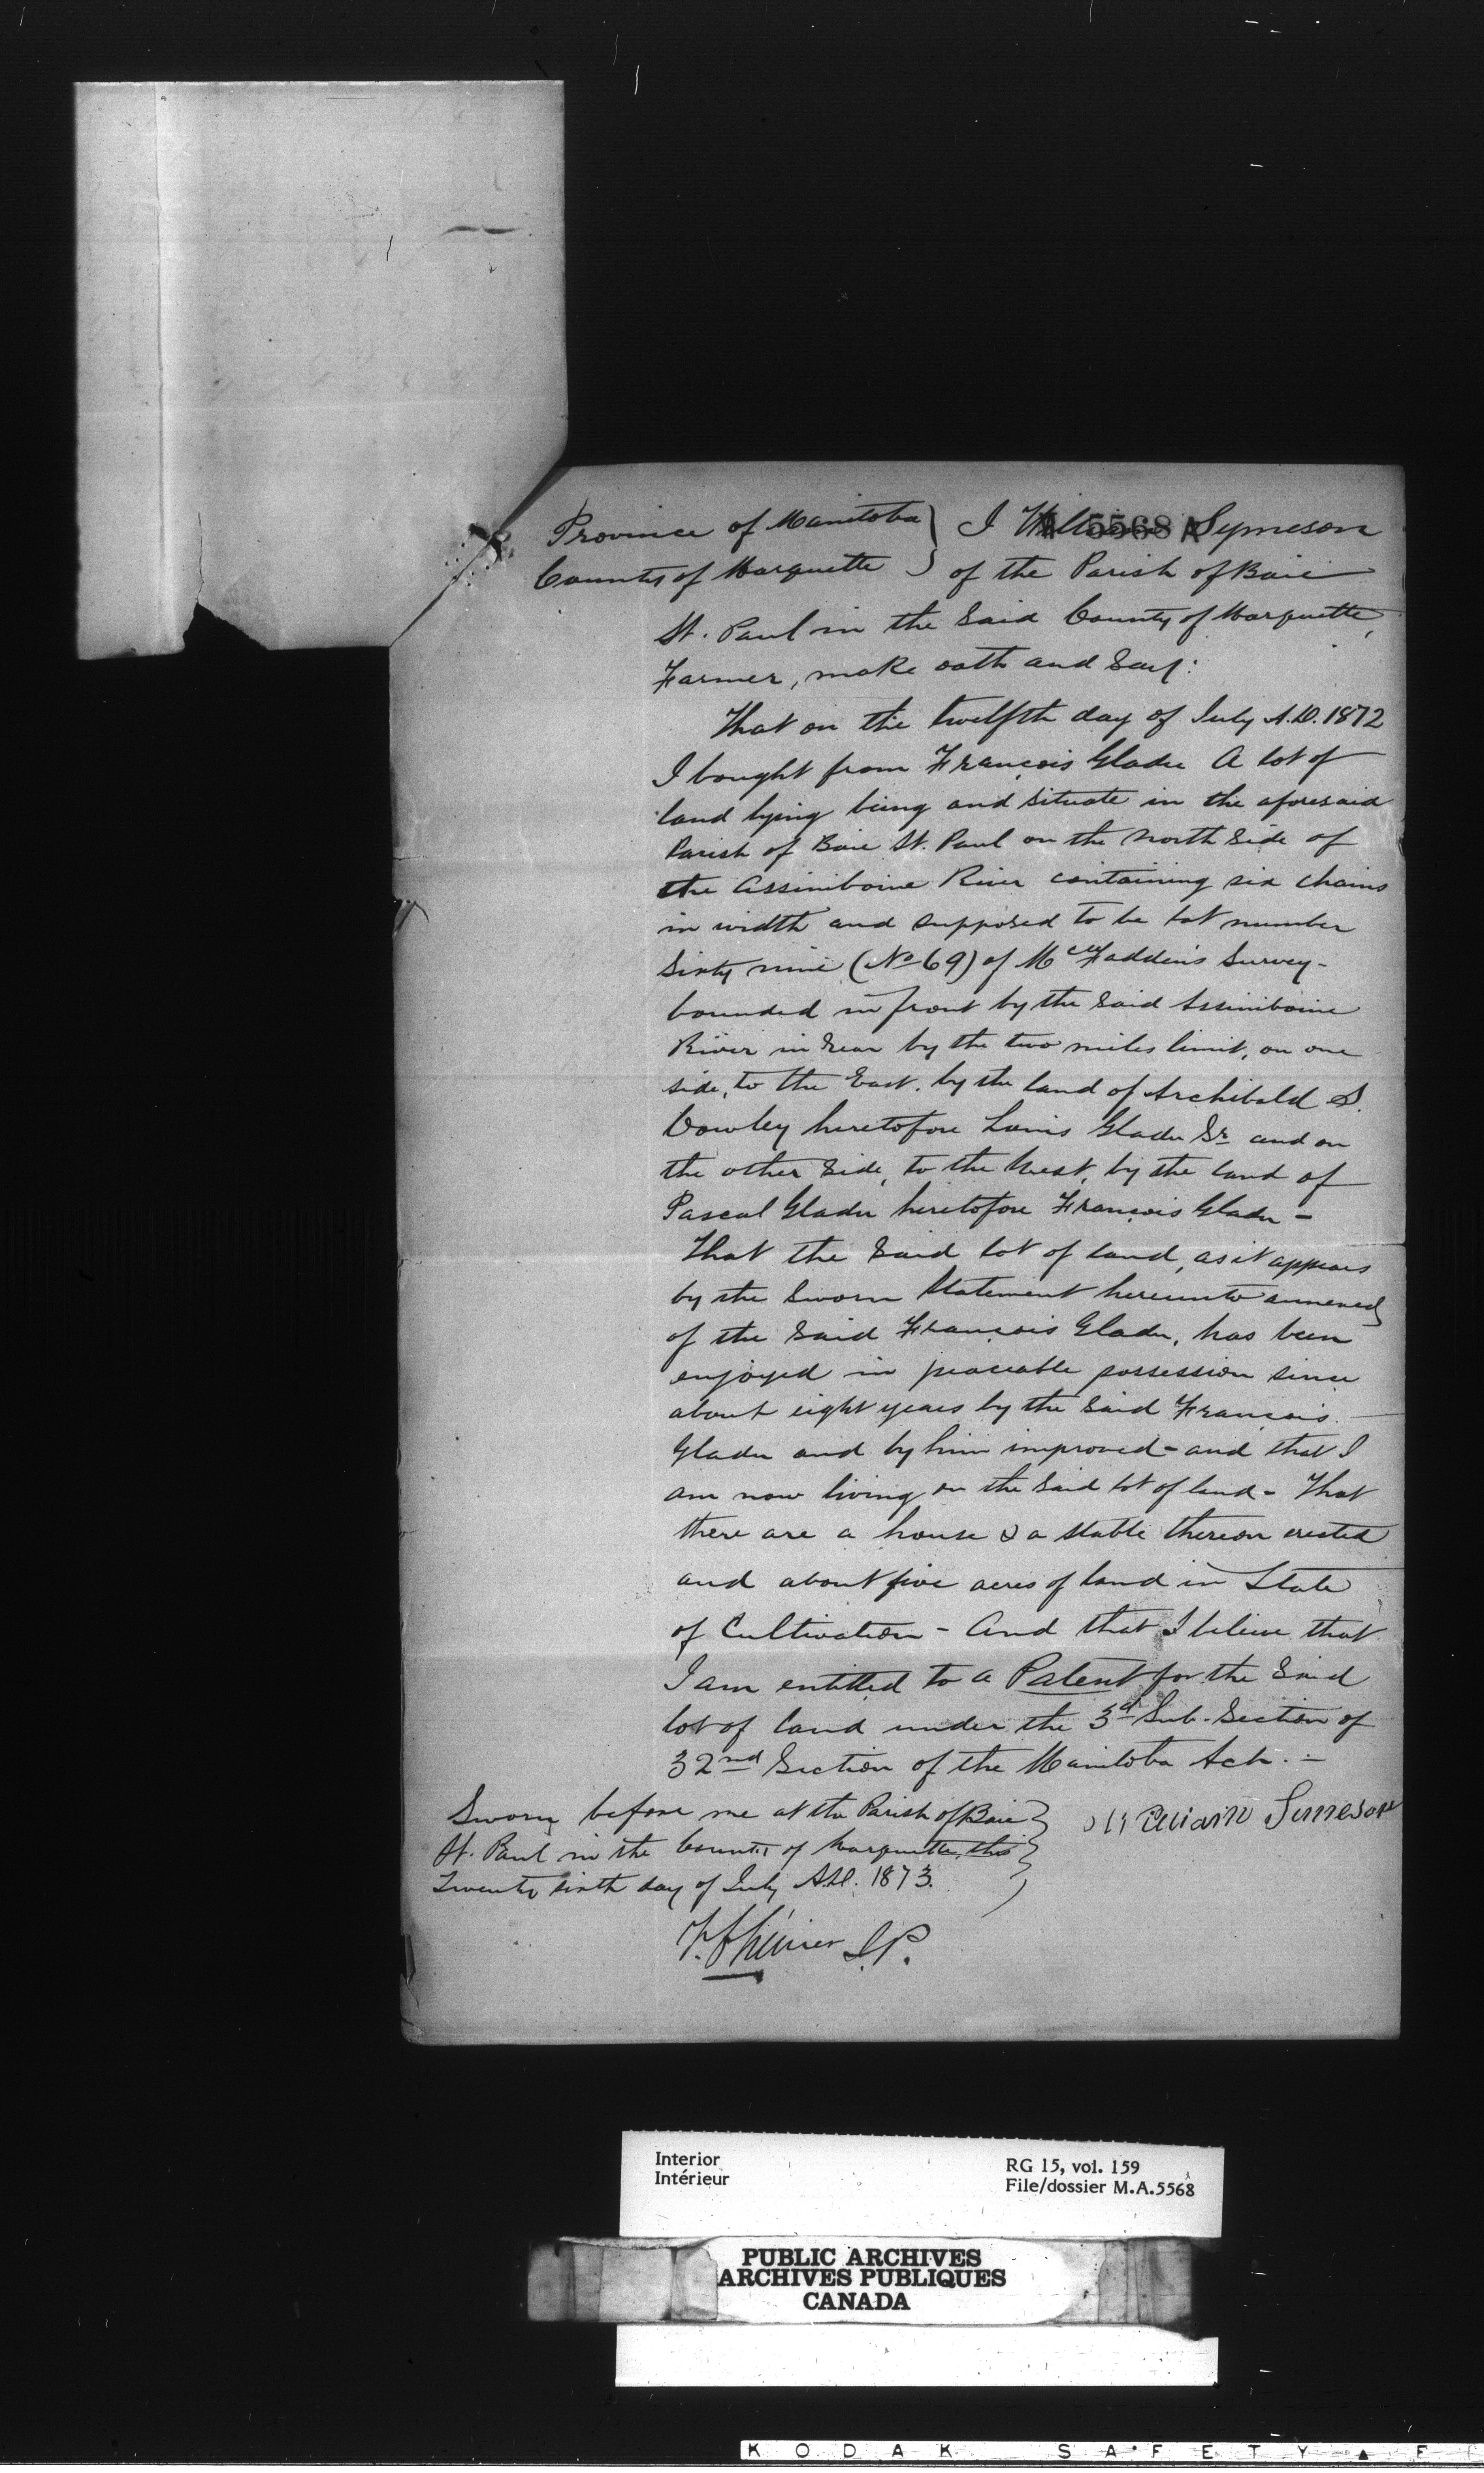 Province of Manitoba } I William Symeson
County of Marquette } of the Parish of Baie
5568
St. Paul in the Said County of Marquette,
Farmer, make oath and Say:
That on the twelfth day of July A.D. 1872
I bought from François Gladu A lot of
land lying being and situate in the aforesaid
Parish of Baie St. Paul on the North Side of
the Assiniboine River containing six chains
in width and supposed to be lot number
Sixty nine (No 69) of McFadden's Survey -
bounded in front by the Said Assiniboine
River in rear by the two miles limit, on one
side, to the East, by the land of Archibald S.
Cowley heretofore Louis Gladu Sr and on
the other side, to the West, by the land of
Pascal Gladu heretofore François Gladu -
That the Said lot of land, as it appears
by the Sworn Statement hereunto annexed
of the Said François Gladu, has been
enjoyed in peaceable possession since
about eight years by the Said François
Gladu and by him improved - and that I
am now living on the Said lot of land - That
there are a house & a stable thereon erected
and about five acres of land in State
of Cultivation - And that I believe that
I am entitled to a Patent for the Said
lot of land under the 3d Sub-Section of
32nd Section of the Manitoba Act. -
Sworn before me at the Parish of Baie
St. Paul in the County of Marquette, this
Twenty sixth day of July A.D. 1873.
William Simeson
J.P.
Interior
Intérieur
RG 15, vol. 159
File/dossier M.A.5568
PUBLIC ARCHIVES
ARCHIVES PUBLIQUES
CANADA
KODAK SAFETY F